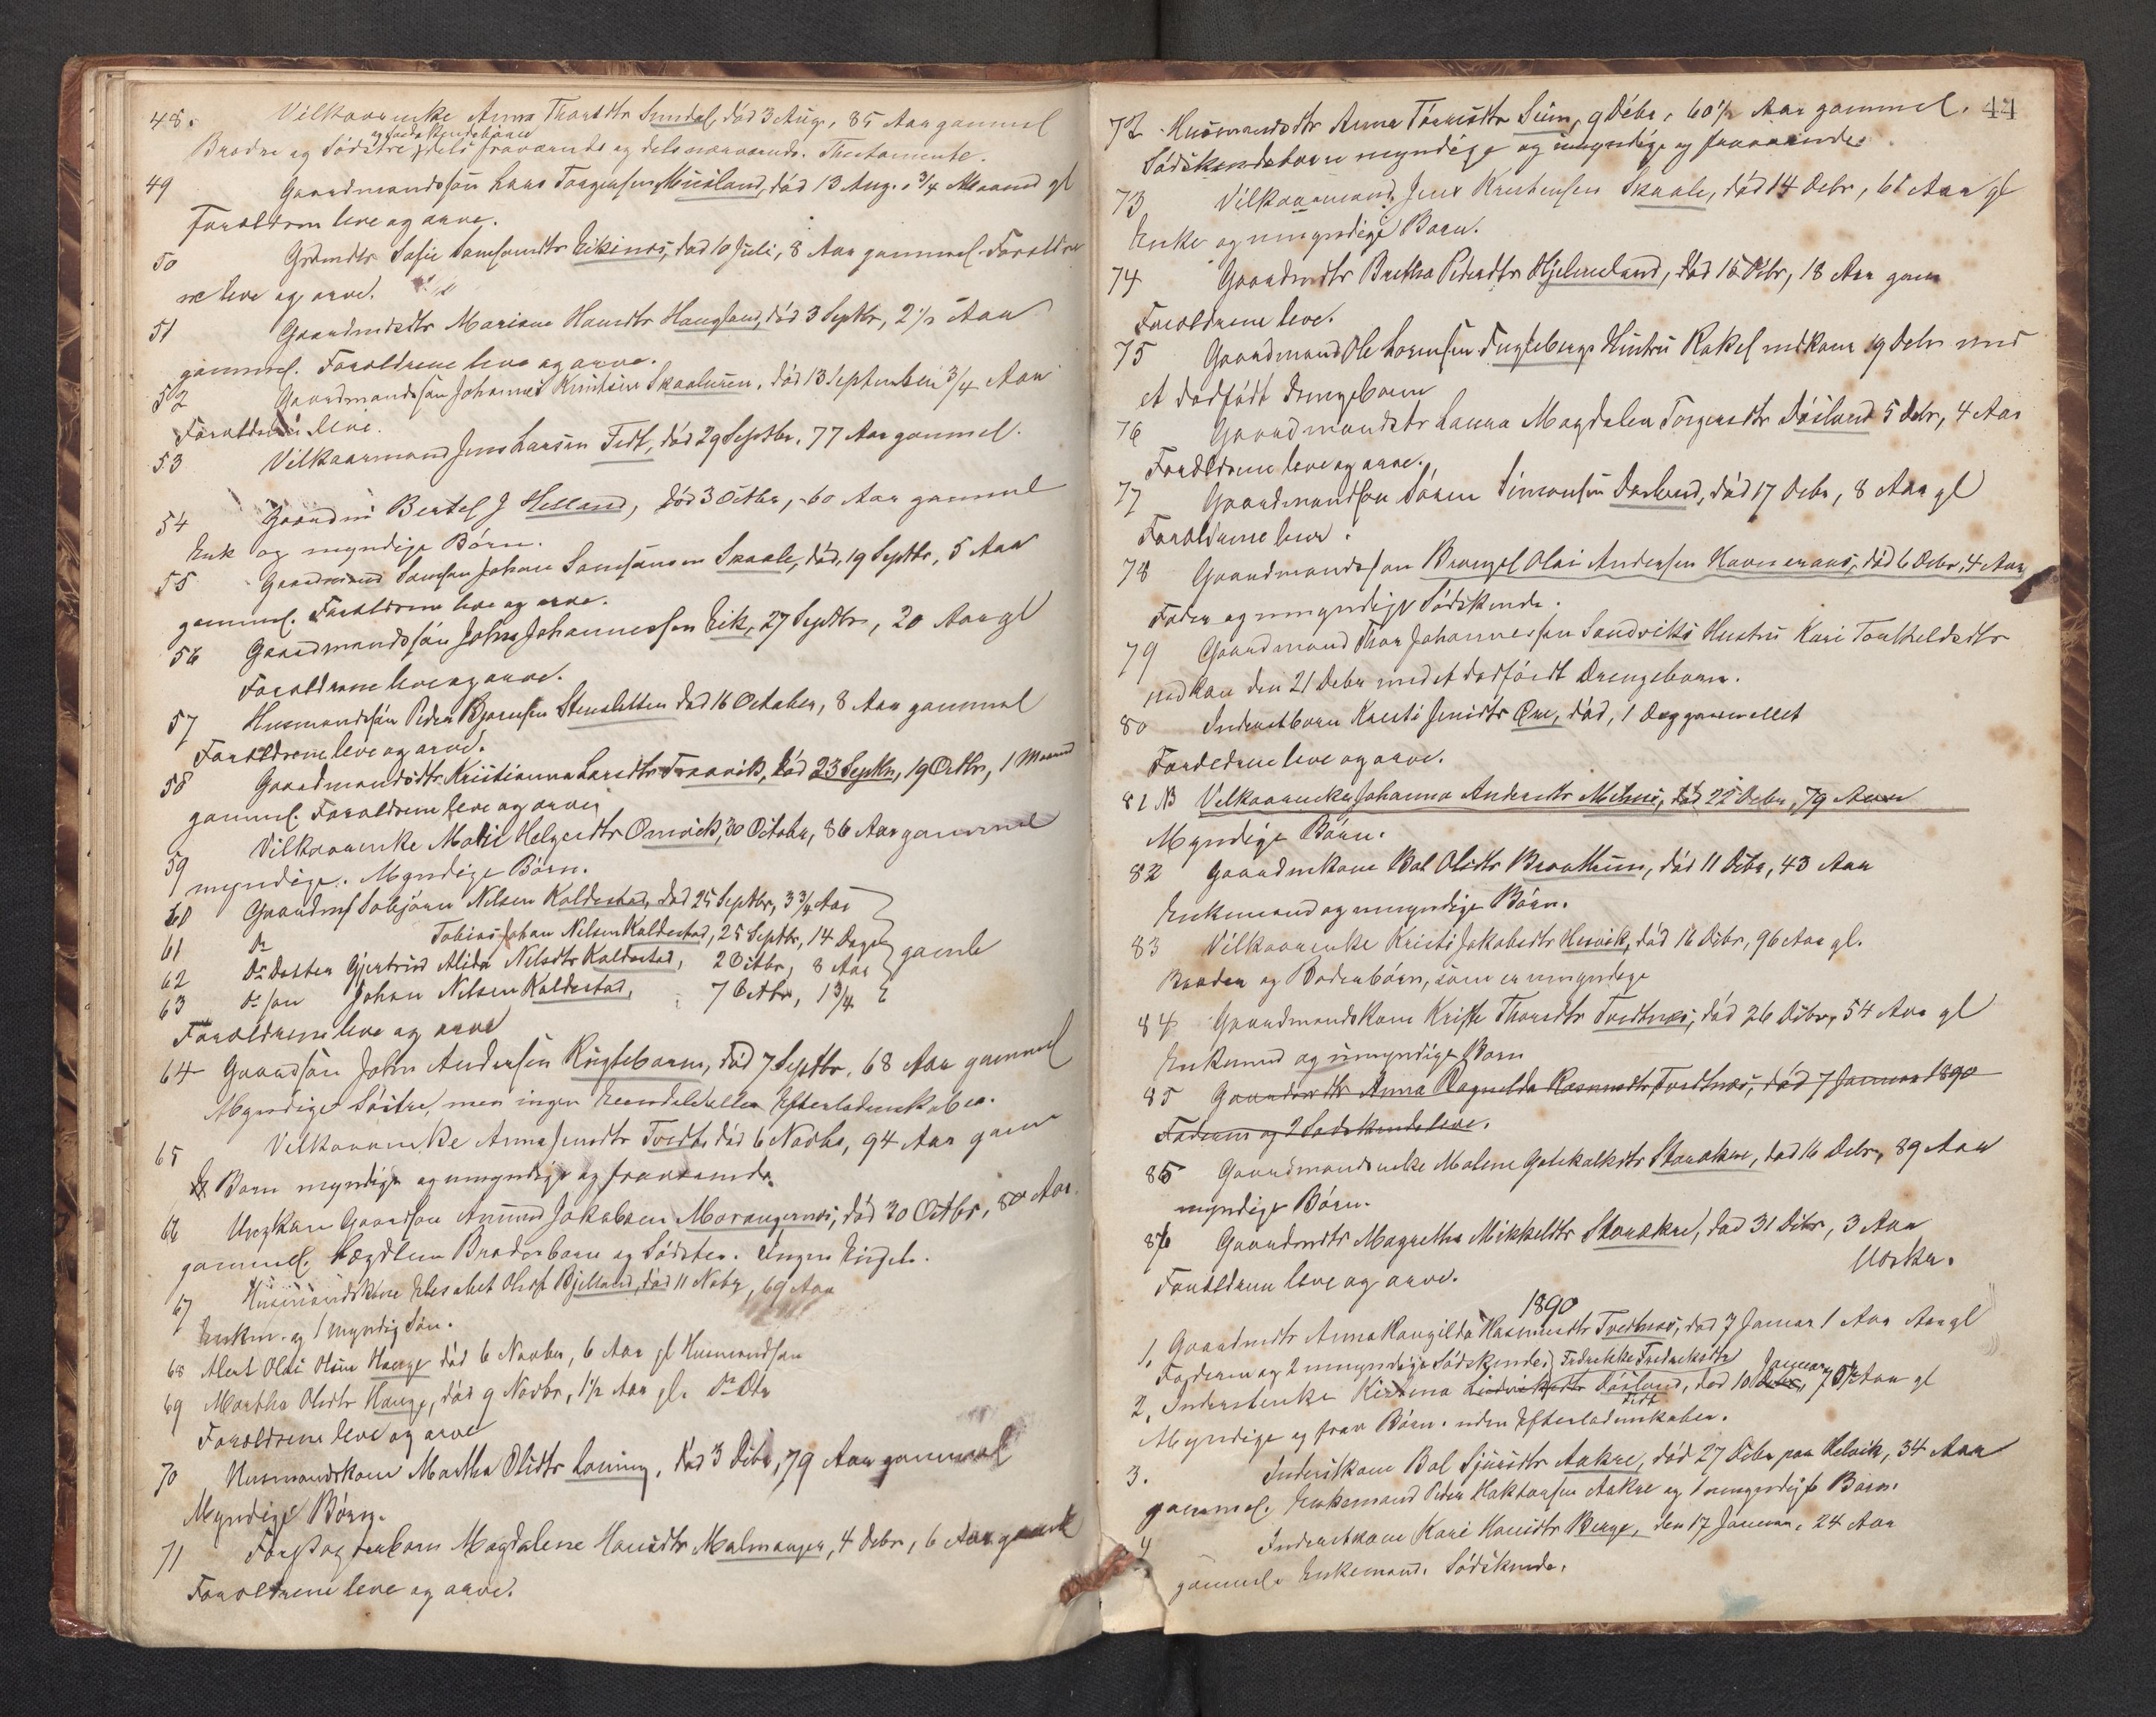 48. Vilkaarenke Anna Thorsdtr Sundal, død 3 Aug., 85 Aar gammel
og Sødskendebørn
Brødre og Sødstre, dels fraværende og dels nærværende. Thestamente.
49 Gaardmandssøn Lars Torgersen Musland, død 13 Aug. 3/4 Maaned gl
Forældren leve og arve.
50 Grdmdtr Sofie Samsonsdtr Eikenes, død 16 Juli, 8 Aar gammel. Forældre
ne leve og arve.
51 Gaardmdsdtr Mariane Hansdtr Haugland, død 3 Septbr, 2 1/2 Aar
gammel. Forældrene leve og arve.
52 Gaardmandssøn Johannes Knutsen Skaaluren, død 13 September 3/4 Aar
Forældrene leve.
53 Vilkaarmand Jens Larsen Tedt, død 29 Septbr, 77 Aar gammel.
54 Gaardm Bertel J Helland, død 3 Octbr, 60 Aar gammel
Enk og myndige Børn.
55 Gaardmand Samson Johan Samsonsen Skaale, død, 19 Septbr, 5 Aar
gammel. Forældrene leve og arve.
56 Gaardmandssøn Johs Johannessen Eik, 27 Septbr, 20 Aar gl
Forældrene leve og arve.
57 Husmandssøn Peder Bjørnsen Steneletten død 16 October, 8 Aar gammel
Forældrene leve og arve.
58 Gaardmandsdtr Kristianna Larsdtr Traavik, død 23 Septbr, 19 Octbr, 1 Maaned
gammel. Forældrene leve og arve
59 Vilkaarenke Mari Helgesdtr Omvik, 30 October, 86 Aar gammel
myndige. Myndige Børn.
60 Gaardms Sobjørn Nilsen Koldestad, død 25 Septbr, 3 3/4 Aar
61 Do Tobias Johan Nilsen Koldestad, 25 Septbr, 14 Dage
62 Do Datter Gjertrud Alida Nilsdtr Koldestad, 2 Octbr, 8 Aar gamle
63 do søn Johan Nilsen Koldestad, 7 Octbr, 1 3/4
Forældrene leve og arve
64 Gaardsøn John Andersen Rugteborn, død 7 Septbr, 68 Aar gammel
Myndige Søstre, men ingen Efterladenskaber.
65 Vilkaarenke Anna Jensdtr Tvedte død 6 Novbr, 94 Aar gam
Børn myndige og umyndige og fraværende.
66 Ungkar Gaardsøn Amund Jakobsen Morangernes, død 30 Octbr, 80 Aar.
gammel. Lægdlem Broderbørn og Sødster. Ingen Eiendele.
67 Husmandskone Elesabet Olsdt Bjelland, død 11 Nobr, 69 Aar
Enkem. og 1 myndig Søn.
68 Alert Olai Olsen Hauge død 6 Novber, 6 Aar gl Husmandsøn
69 Martha Olsdtr Hauge, død 9 Novbr, 1 1/2 Aar gl. Do Dtr
Forældrene leve og arve
70 Husmandskone Martha Olsdtr Lonning, død 3 Debr, 79 Aar gammel
Myndige Børn.
71 Magdalene Hansdtr Malmanger, 4 Debr, 6 Aar gamel
Forældrene leve og arve.
44
72 Husmandsdtr Anna Tørrisdtr Sum, 9 Debr, 60 1/2 Aar gammel.
Sødskendebørn myndige og umyndige og fraværende.
73 Vilkaarmand Jens Knutsen Skaale, død 14 Debr, 61 Aar gl
Enke og umyndige Børn.
74 Gaardmdtr Bretha Pedersdtr Hjelmeland, død 15 Debr, 18 Aar gam
Forældrene leve.
75 Gaardmand Ole Lorensen Fugleberg Hustru Rakel nedkom 19 Debr med
et dødfødt Drengebarn
76 Gaardmandsdtr Laura Magdalen Torgersdtr Døsland 5 Debr, 4 Aar
Forældrene leve og arve.
77 Gaardmandsøn Søren Simonsen Døsland, død 17 Debr, 8 Aar gl
Forældrene leve.
78 Gaardmandssøn Brengel Olai Andersen Havneraas, død 6 Debr, 4 Aar
Fader og umyndige Sødskende.
79 Gaardmand Thor Johannesen Sandviks Hustru Kari Torkheldsdtr
nedkom den 21 Debr med et dødfødt Drengebarn.
80 Inderstbarn Kristi Jensdtr Øre, død, 1 Dag gammelt
Forældrene leve og arve.
81 NB Velkaarenke Johanna Andersdtr Mehus, død 22 Debr, 79 Aar
Myndige Børn.
82 Gaardmkone Bol Olsdtr Bratthun, død 11 Debr, 43 Aar
Enkemand og umyndige Børn.
83 Vilkaarenke Kristi Jakobsdtr Hesvik, død 16 Debr, 96 Aar gl.
Broder og Broderbørn, som er umyndige
84 Gaardmandskone Kristi Thorsdtr Tvedtnæs, død 26 Debr, 54 Aar gl
Enkemd og umyndige Børn
85 Gaardmdtr Anna Ragnilda Rasmusdtr Tvedtnæs, død 7 Januar 1890
Faderen og 2 Sødskende leve.
85 Gaardmandsenke Malene Gotskalksdtr Skarakre, død 16 Debr, 89 Aar
myndige Børn.
86 Gaardmdtr Magretha Mikkelsdtr Skarakre, død 31 Debr, 3 Aar
Forældren leve og arve. Uoskar.
1890
1. Gaardmdtr Anna Rangilda Rasmusdtr Tvedtnæs, død 7 Januar 1 Aar Aar gl
Faderen og 2 umyndige Sødskende. Fredrikke Fredriksdtr
2. Inderstenke Kirstina Døsland, død 10 Januar, 70 1/2 Aar gl
Myndige og frav Børn. uden Efterladenskaber.
3. Inderstkone Bol Sjursdtr Aakre, død 27 Debr paa Helvik, 34 Aar
gammel. Enkemand Peder Haktorsen Aakre og 1 umyndigt Børn.
4 Inderstkone Kari Hansdtr Berge, den 17 Januar, 24 Aar
gammel. Enkemand. Sødskende.